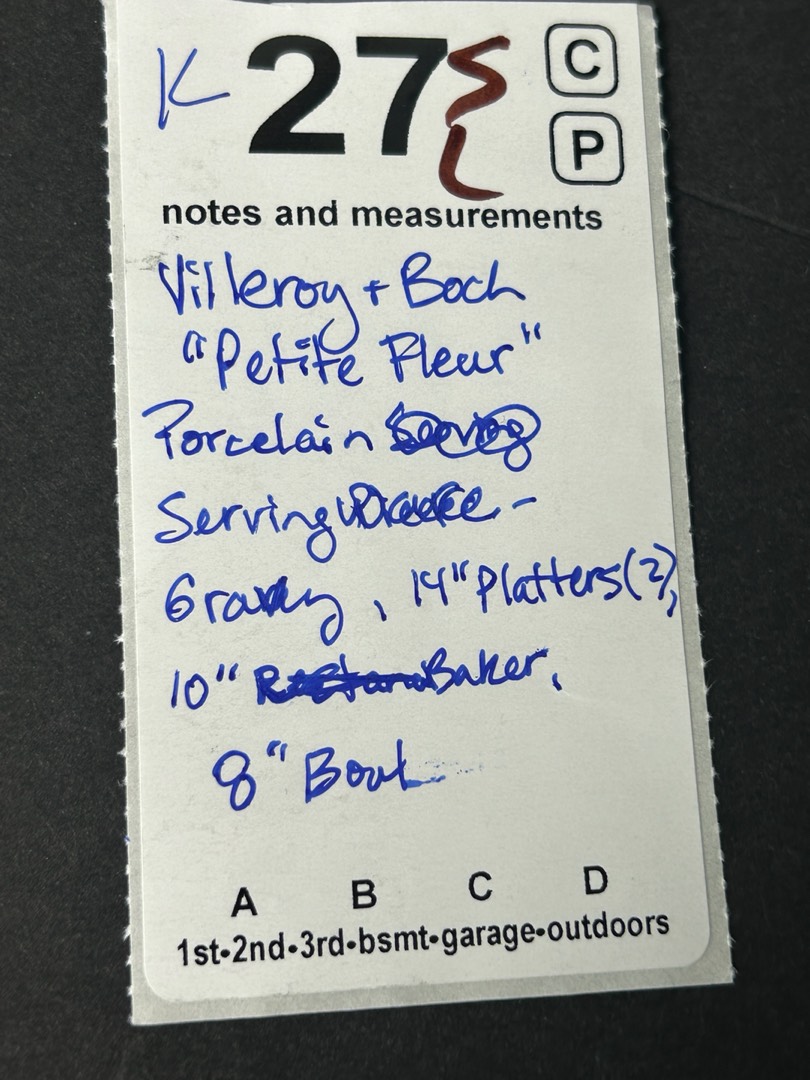 K 27 C
P
notes and measurements
Villeroy + Boch
"Petite Fleur"
Porcelain
Serving -
Gravy, 14" Platters (2),
10" Baker,
8" Bowl
A B C D
1st•2nd•3rd•bsmt•garage•outdoors